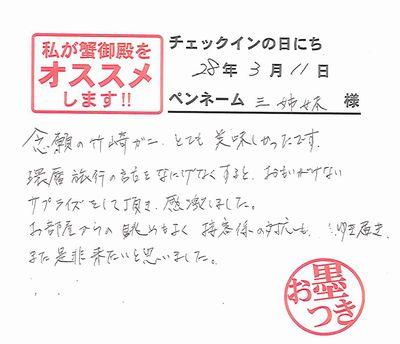 私が蟹御殿を
オススメ
します!!
チェックインの日にち
28年3月11日
ペンネーム 三姉妹 様
念願の竹崎ガニ、とても美味しかったです。
還暦旅行の話をなにげなくすると、おもいがけない
サプライズをして頂き、感激しました。
お部屋からの眺めもよく 接客係の対応も、ゆき届き、
また是非来たいと思いました。
お墨つき